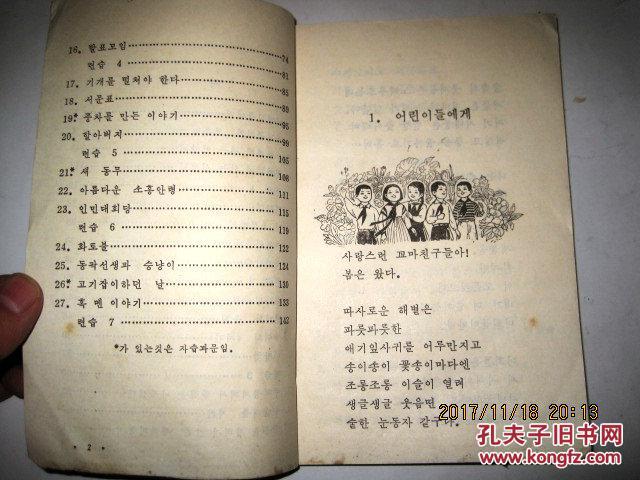 16. 발표모임 ········ 74
련습 4 ········ 81
17. 기개를 떨쳐야 한다 ········ 85
18. 서문표 ········ 89
19.* 풍차를 만든 이야기 ········ 95
20. 할아버지 ········ 99
련습 5 ········ 105
21.* 새 동무 ········ 108
22. 아름다운 소흥안령 ········ 111
23. 인민대회당 ········ 115
련습 6 ········ 119
24. 화토불 ········ 122
25. 동곽선생과 승냥이 ········ 124
26.* 고기잡이하던 날 ········ 130
27. 혹 멘 이야기 ········ 133
련습 7 ········ 142
*가 있는것은 자습과문임.
· 2 ·
1. 어린이들에게
사랑스런 꼬마친구들아!
봄은 왔다.
따사로운 해볕은
파릇파릇한
애기잎사귀를 어루만지고
송이송이 꽃송이마다엔
조롱조롱 이슬이 열려
생글생글 웃음면
숱한 눈동자 같구나.
2017/11/18 20:13
孔夫子旧书网
www.kongfz.com